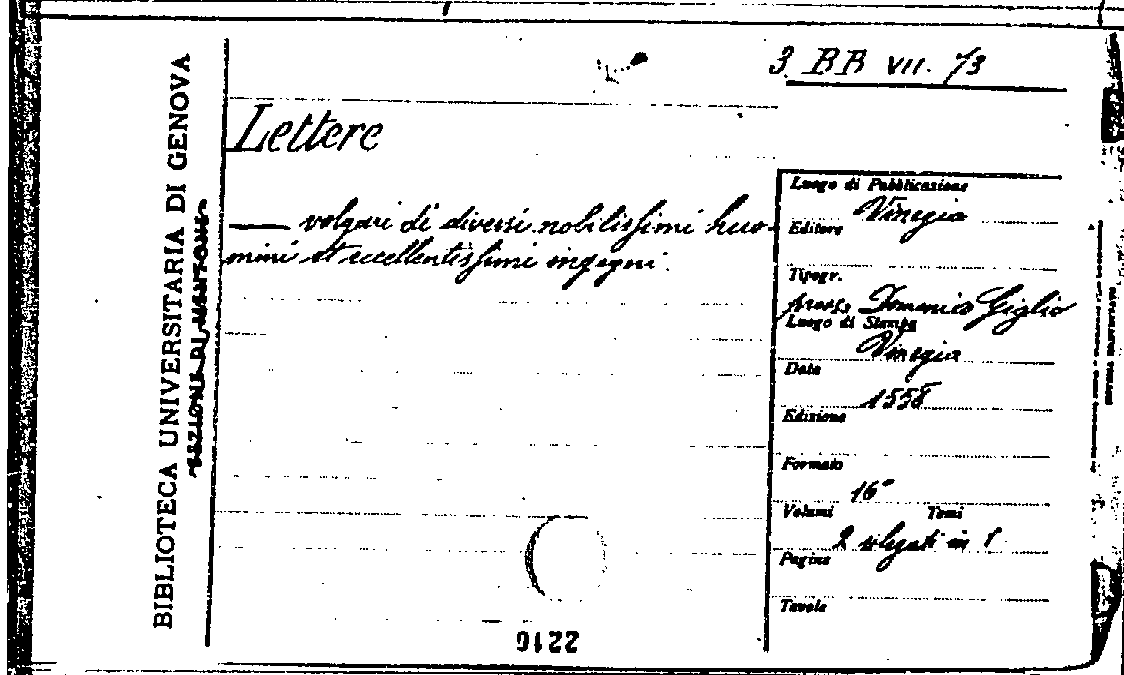 3 BB VII. 73
BIBLIOTECA UNIVERSITARIA DI GENOVA
Lettere
— volgari di diversi nobilissimi huo-
mini et eccellentissimi ingegni.
Luogo di Pubblicazione
Vinegia
Editore
Tipogr.
Domenico Giglio
Luogo di Stampa
Vinegia
Data
1558
Edizione
Formato
16°
Volumi Tomi
2 in 1
Pagine
Tavole
2216